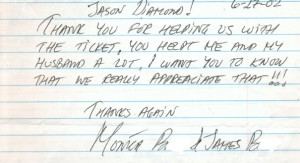 JASON DIAMOND! 6-27-02
THANK YOU FOR HELPING US WITH
THE TICKET, YOU HELPT ME AND MY
HUSBAND A LOT, I WANT YOU TO KNOW
THAT WE REALLY APPREACIATE THAT!!!
THANKS AGAIN
MONICA & JAMES